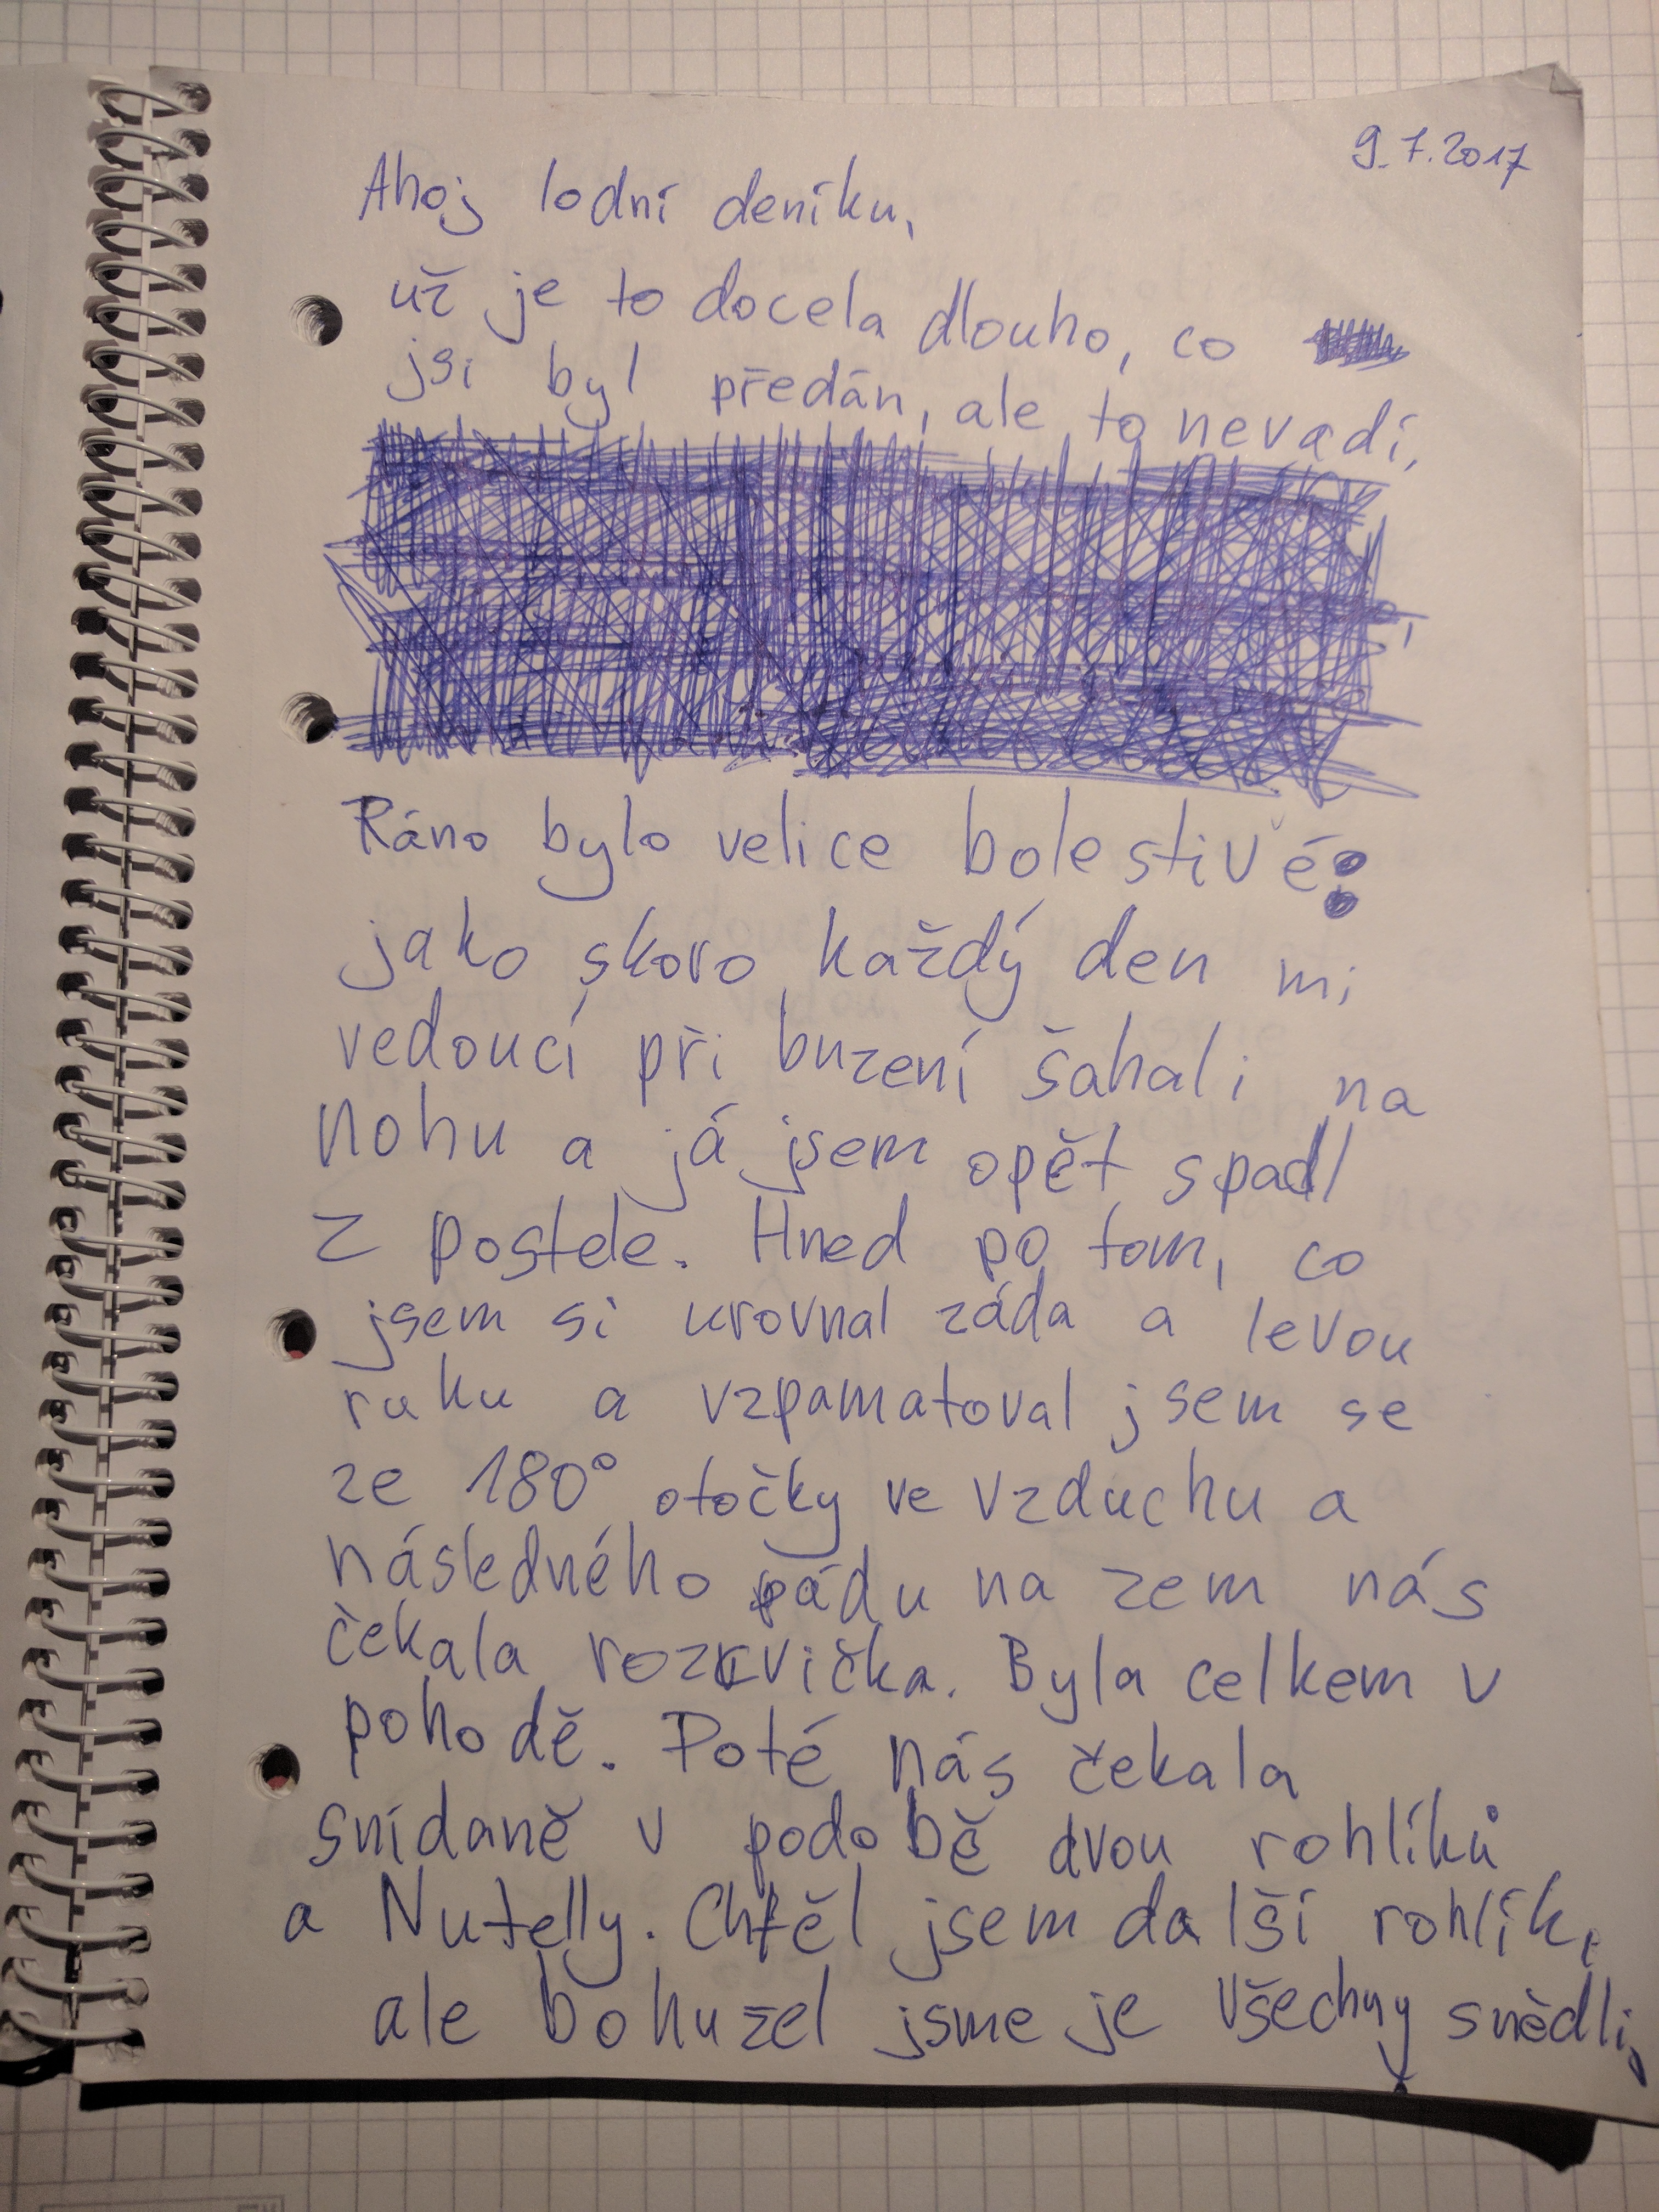 9.7.2017
Ahoj lodní deníku,
už je to docela dlouho, co
jsi byl předán, ale to nevadí,
Ráno bylo velice bolestivé:
jako skoro každý den mi
vedoucí při buzení šahali na
nohu a já jsem opět spadl
z postele. Hned po tom, co
jsem si urovnal záda a levou
ruku a vzpamatoval jsem se
ze 180° otočky ve vzduchu a
následného pádu na zem nás
čekala rozcvička. Byla celkem v
pohodě. Poté nás čekala
snídaně v podobě dvou rohlíků
a Nutelly. Chtěl jsem další rohlík,
ale bohužel jsme je všechny snědli,